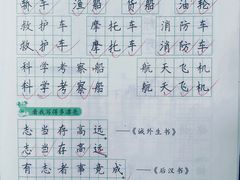 轿车 渔船 货船 油轮
救护车 摩托车 消防车
救护车 摩托车 消防车
科学考察船 航天飞机
科学考察船 航天飞机
看我写得多漂亮
志当存高远。 ——《诫外生书》
志当存高远。
有志者事竟成。 ——《后汉书》